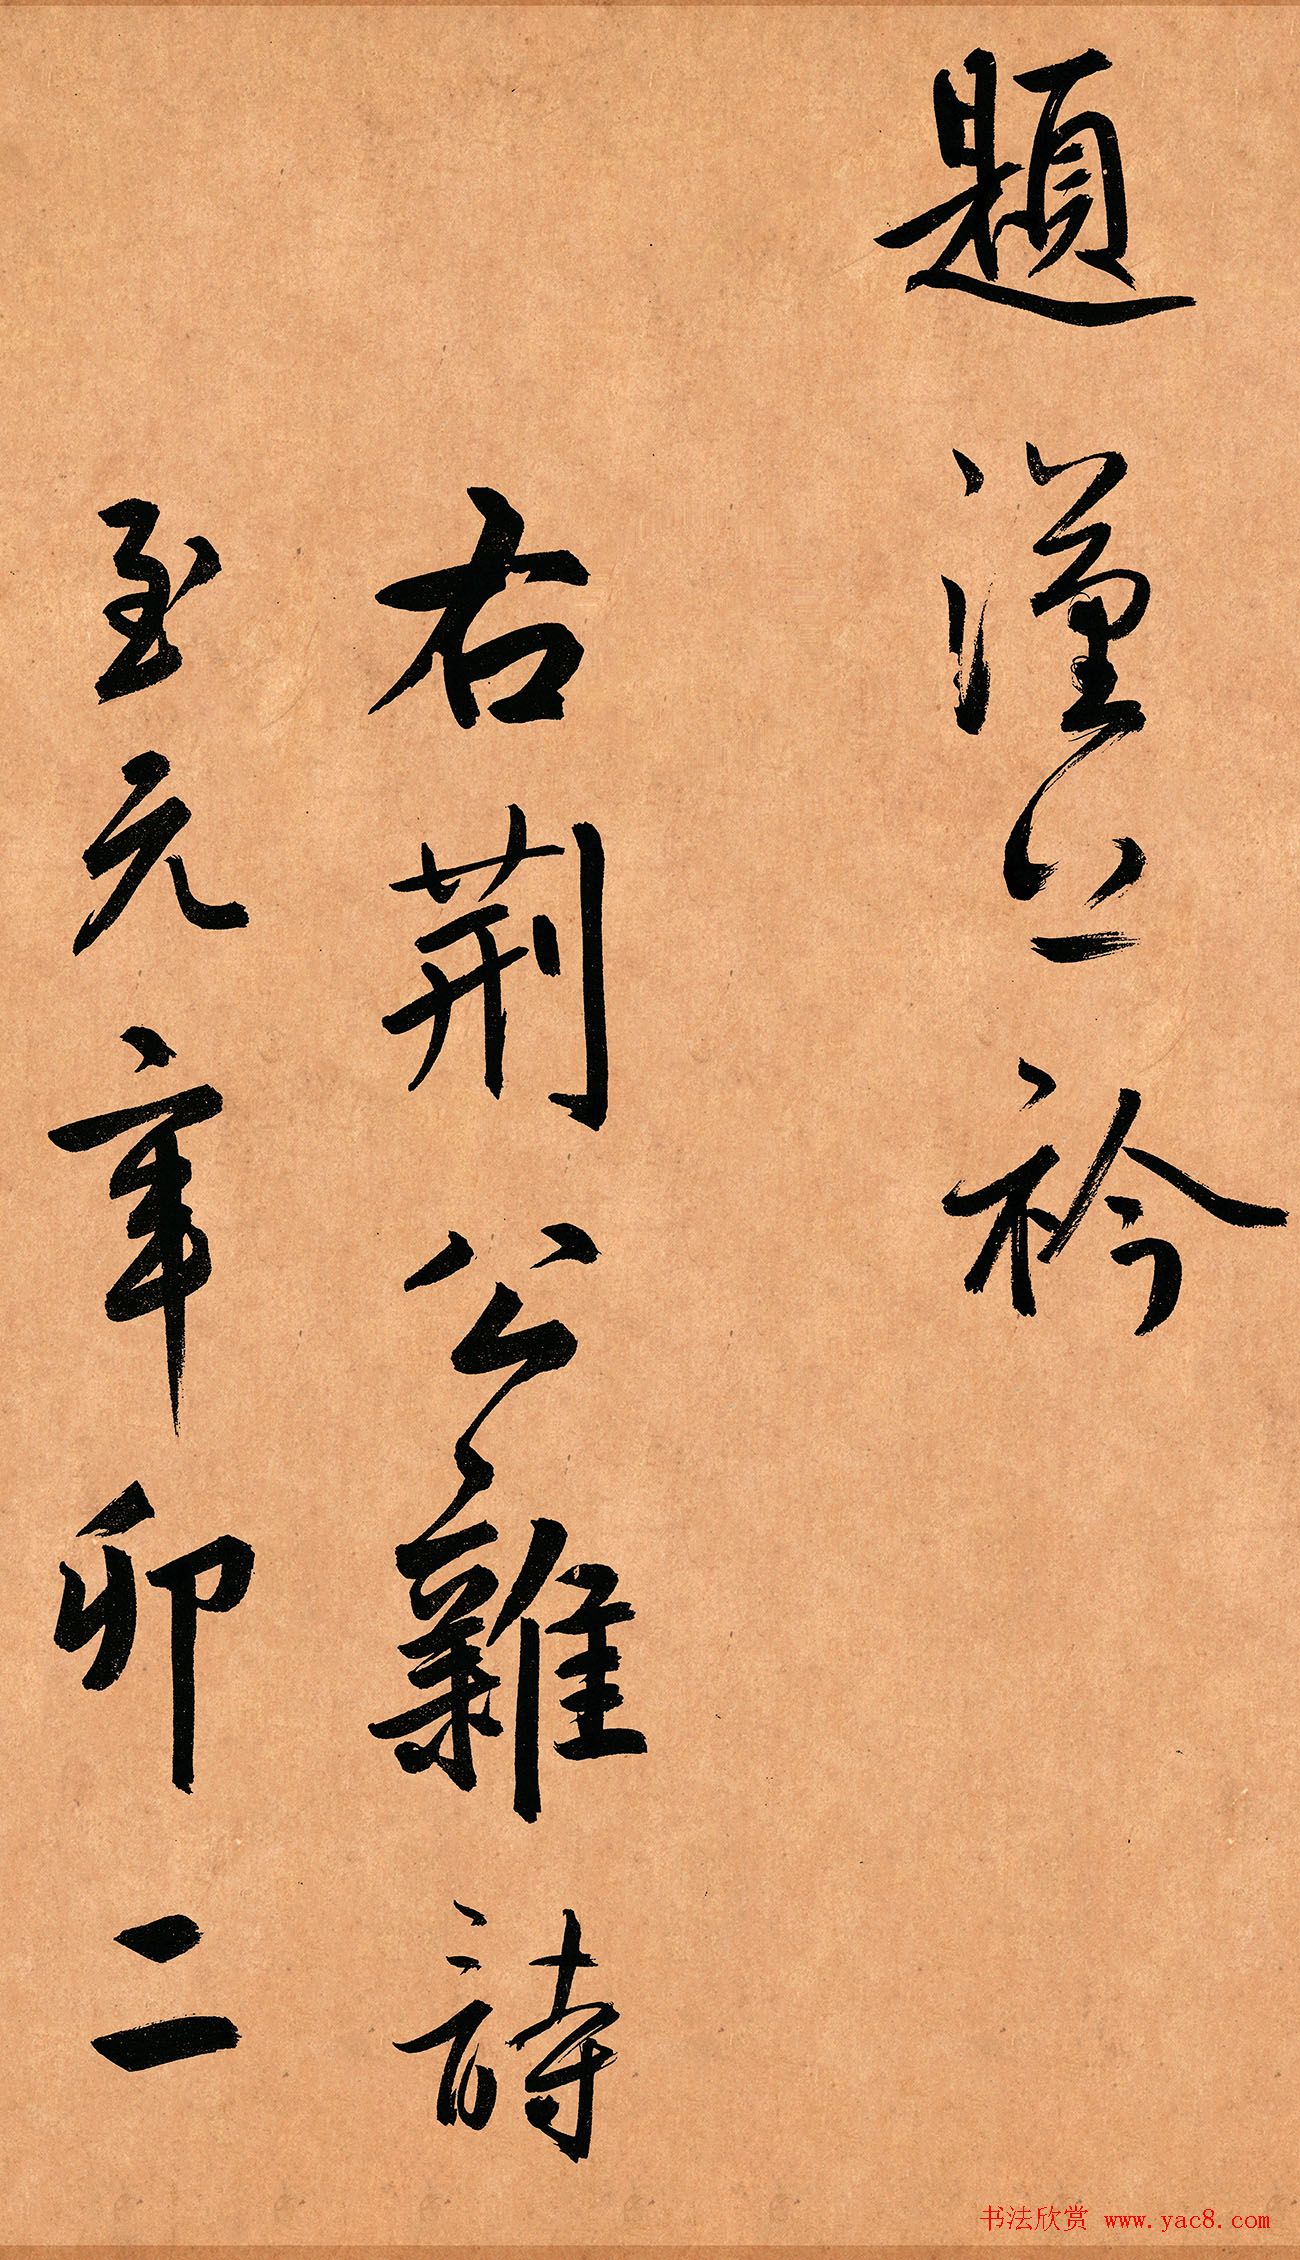 題
衿
右荆公雜詩
至元辛卯二
书法欣赏 www.yac8.com